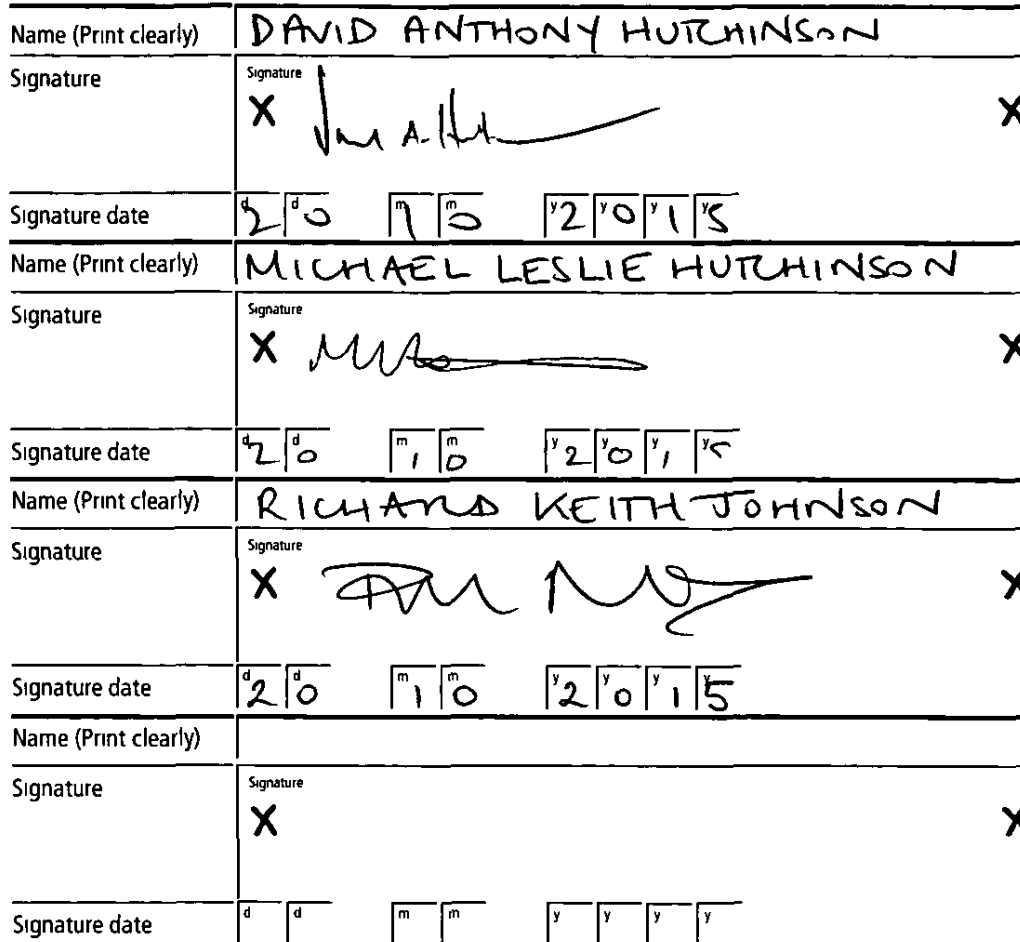 Name (Print clearly) DAVID ANTHONY HUTCHINSON
Signature Signature
X X
Signature date d2 d0 m1 m0 y2 y0 y1 y5
Name (Print clearly) MICHAEL LESLIE HUTCHINSON
Signature Signature
X X
Signature date d2 d0 m1 m0 y2 y0 y1 y5
Name (Print clearly) RICHARD KEITH JOHNSON
Signature Signature
X X
Signature date d2 d0 m1 m0 y2 y0 y1 y5
Name (Print clearly)
Signature Signature
X X
Signature date d d m m y y y y